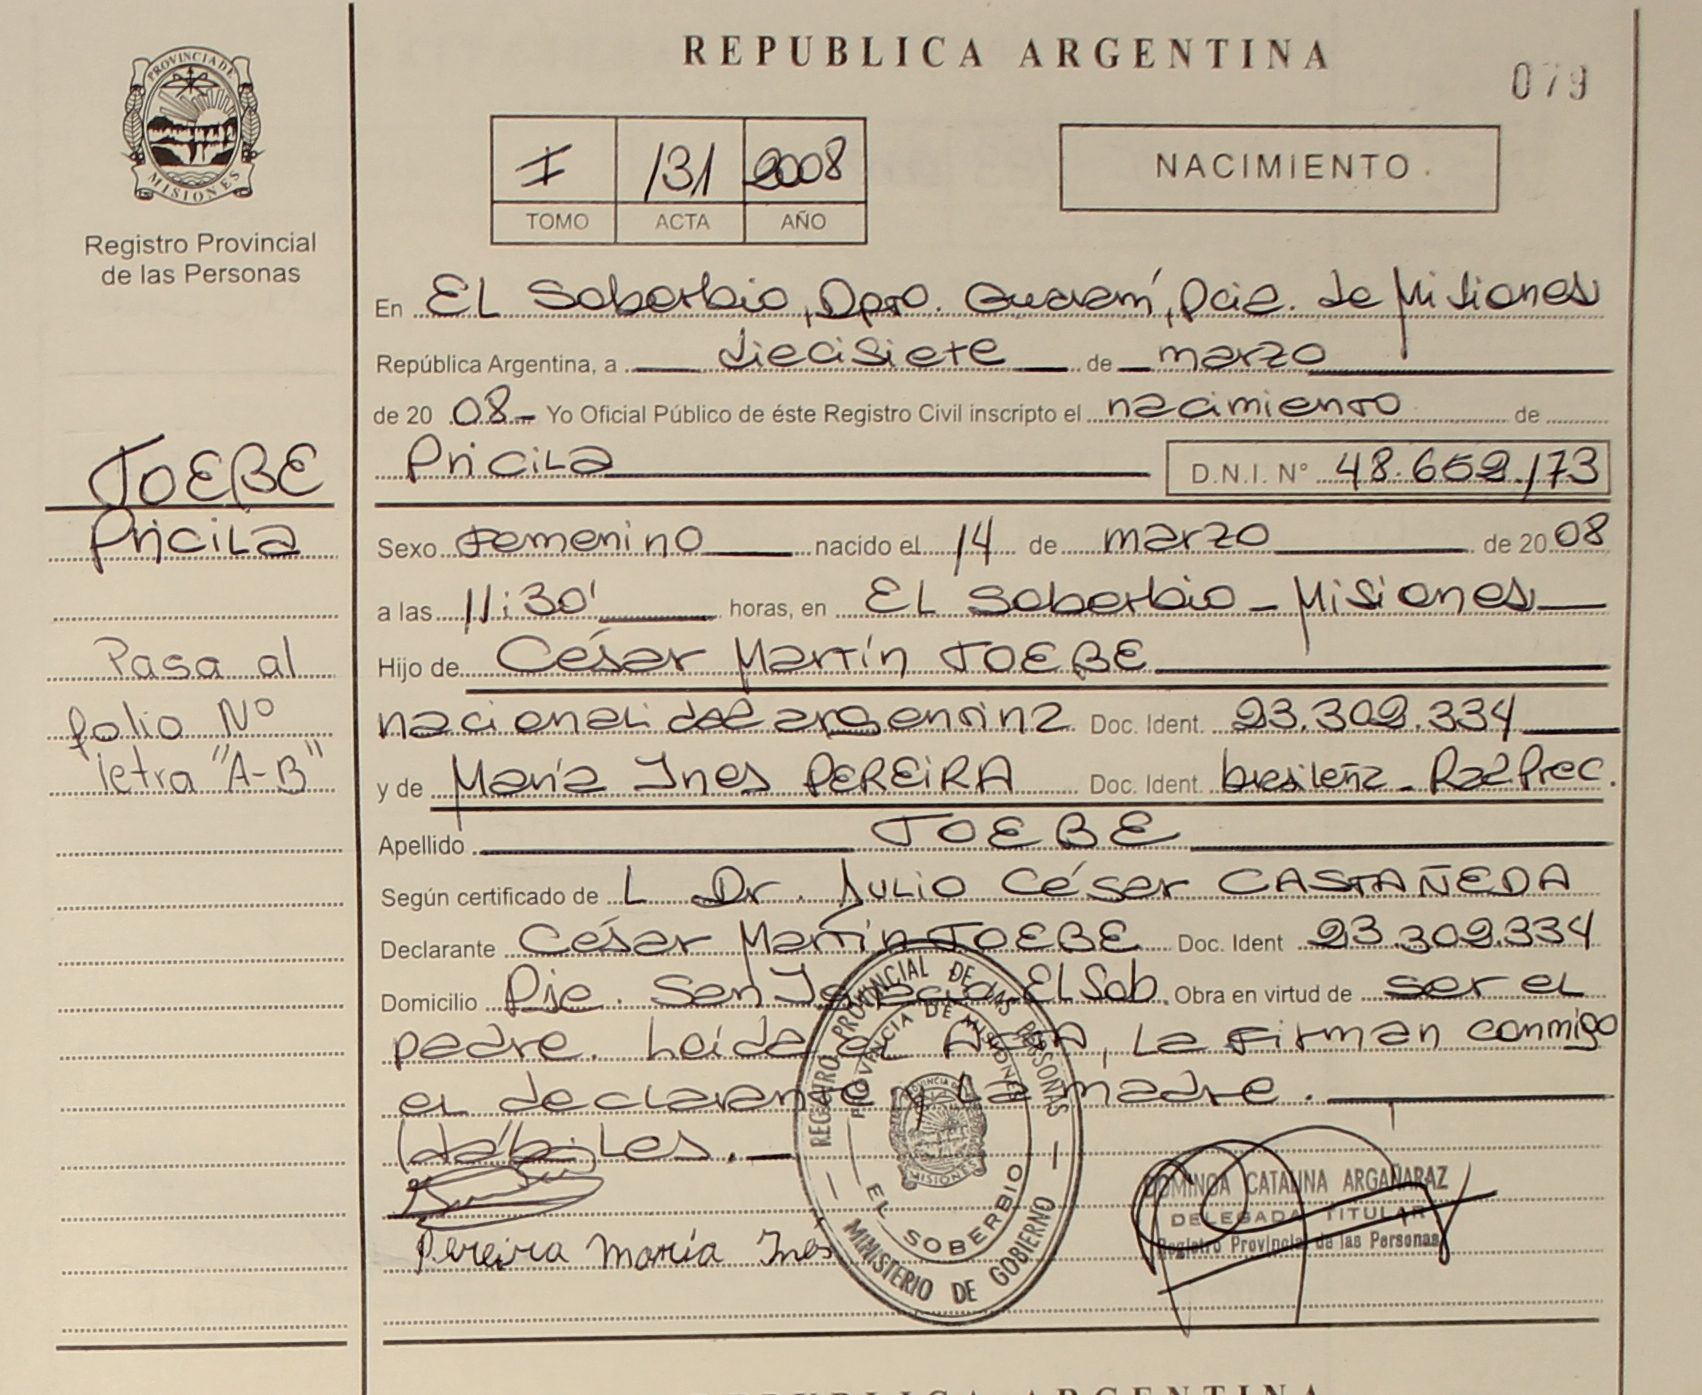 REPUBLICA ARGENTINA
079
PROVINCIA DE
MISIONES
Registro Provincial
de las Personas
I 131 2008
TOMO ACTA AÑO
NACIMIENTO
En EL Soberbio, Dpto. Guaraní, Pcia. de Misiones
República Argentina, a diecisiete de marzo
de 20 08 Yo Oficial Público de éste Registro Civil inscripto el nacimiento de
Pricila D.N.I. Nº 48.652.173
JOEBE
Pricila
Sexo Femenino nacido el 14 de marzo de 20 08
a las 11:30' horas, en EL Soberbio - Misiones
Hijo de César Martín JOEBE
Pasa al
folio Nº
letra "A-B"
nacionalidad argentina Doc. Ident. 23.302.334
y de María Ines PEREIRA Doc. Ident. brasileña - Rad Prec.
Apellido JOEBE
Según certificado de L Dr. Julio César CASTAÑEDA
Declarante César Martín JOEBE Doc. Ident 23.302.334
Domicilio Pje. San Ignacio - El Sob. Obra en virtud de ser el
padre. Leída el Acta, la firman conmigo
el declarante y la madre.
Hábiles.
Pereira María Inés
REGISTRO PROVINCIAL DE LAS PERSONAS
PROVINCIA DE MISIONES
EL SOBERBIO
MINISTERIO DE GOBIERNO
DOMINGA CATALINA ARGAÑARAZ
DELEGADA TITULAR
Registro Provincial de las Personas
REPUBLICA ARGENTINA